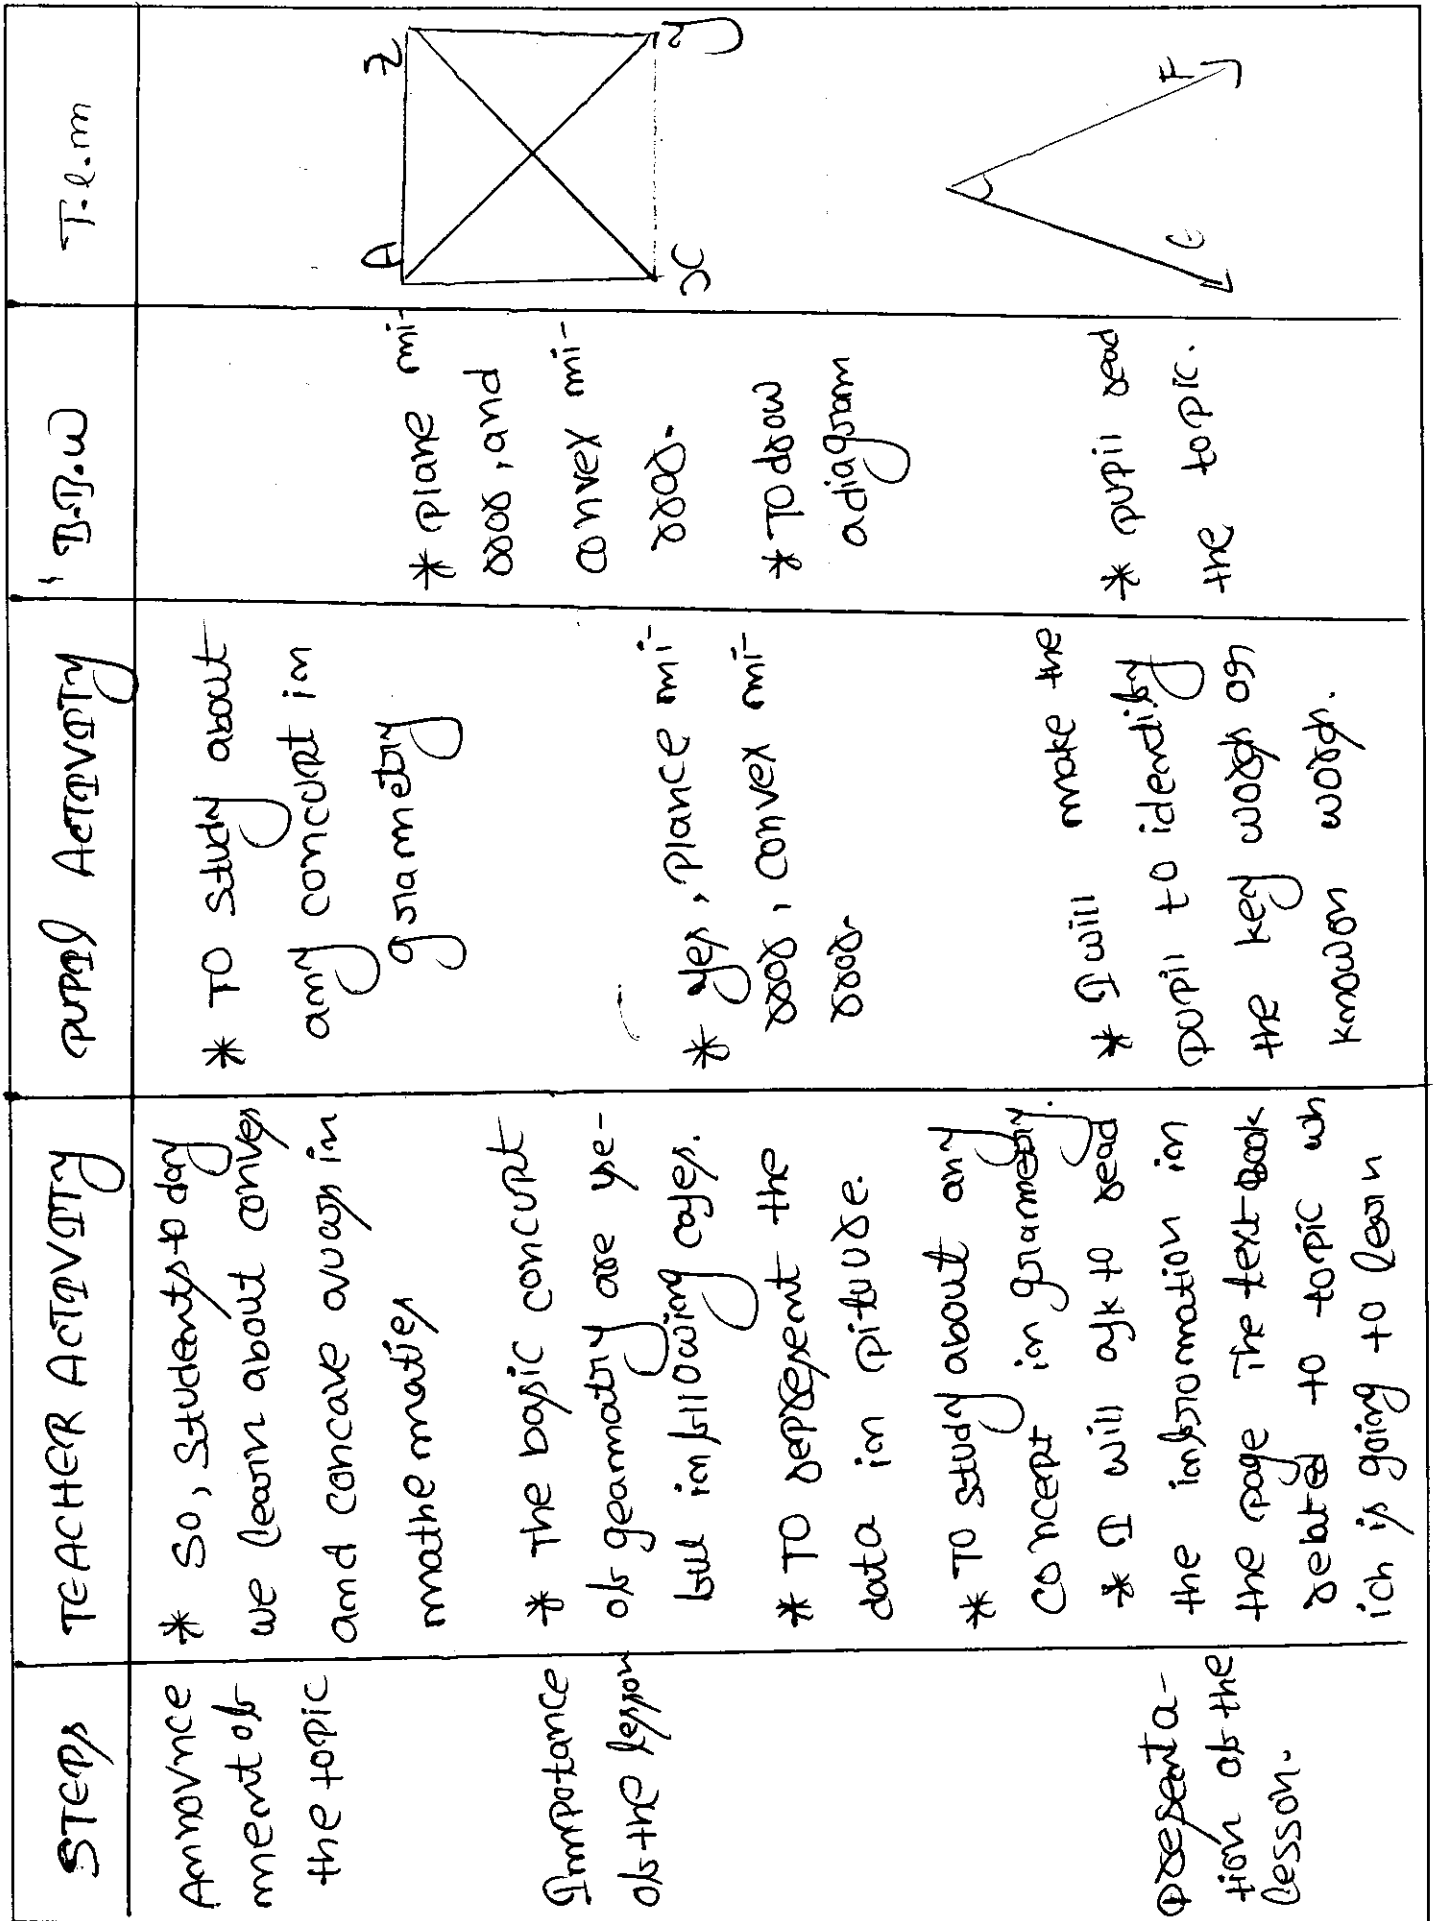 STEPs TEACHER ACTIVITY PUPIl ACTIVITY B.B.W T.l.m
Announce
ment of
the topic
* So, Students to day
we learn about conves
and concave avuas in
mathematies
* TO study about
any concupt in
gramedry
Impotance
of the lesson
* The basic concupt
of geanmatry are use-
ful in following cases.
* TO represent the
data in pituure.
* TO study about any
concept in grammetry.
* yes, plance mi-
rror, convex mi-
rror.
* plane mi-
rror, and
convex mi-
rror.
* TO drow
adiagram
A Z
x y
presenta-
tion of the
lessson.
* I will ask to read
the information in
the page The text-Book
related to topic wh
ich is going to learn
* I will make the
pupil to identify
the key words or
knowon words.
* pupil read
the topic.
E F